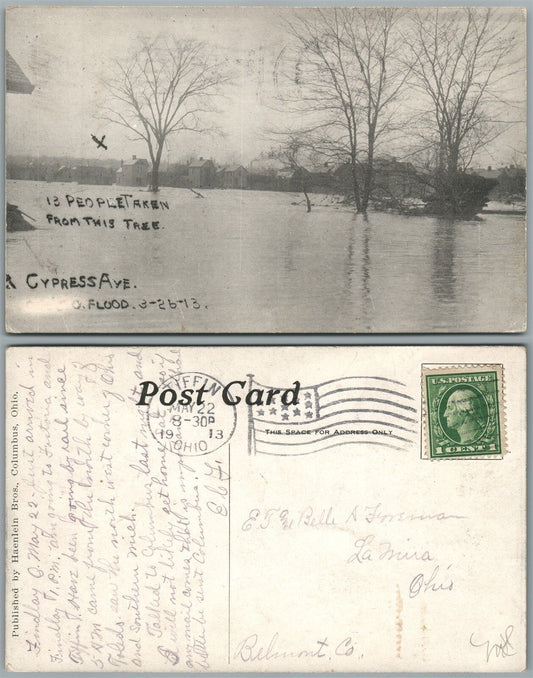 13 PEOPLE TAKEN
FROM THIS TREE.
CYPRESS AVE.
O. FLOOD. 3-26-13.
Post Card
THIS SPACE FOR ADDRESS ONLY
TIFFIN
MAY 22
8-30P
1913
OHIO
U.S. POSTAGE
1 CENT 1
Published by Haenlein Bros., Columbus, Ohio.
Findlay O. May 22 - just arrived in
Findlay P.M. am going to and
Tiffin. Have been going by rail since
5 A.M. came from the north by way of
Toledo saw the north west corner Ohio
and Southern Mich.
Talked to Columbus last night and
will not likely get home
any mail comes that is
better be sent Columbus.
E. T. & Belle A Foreman
La Mira
Ohio
Belmont. Co.